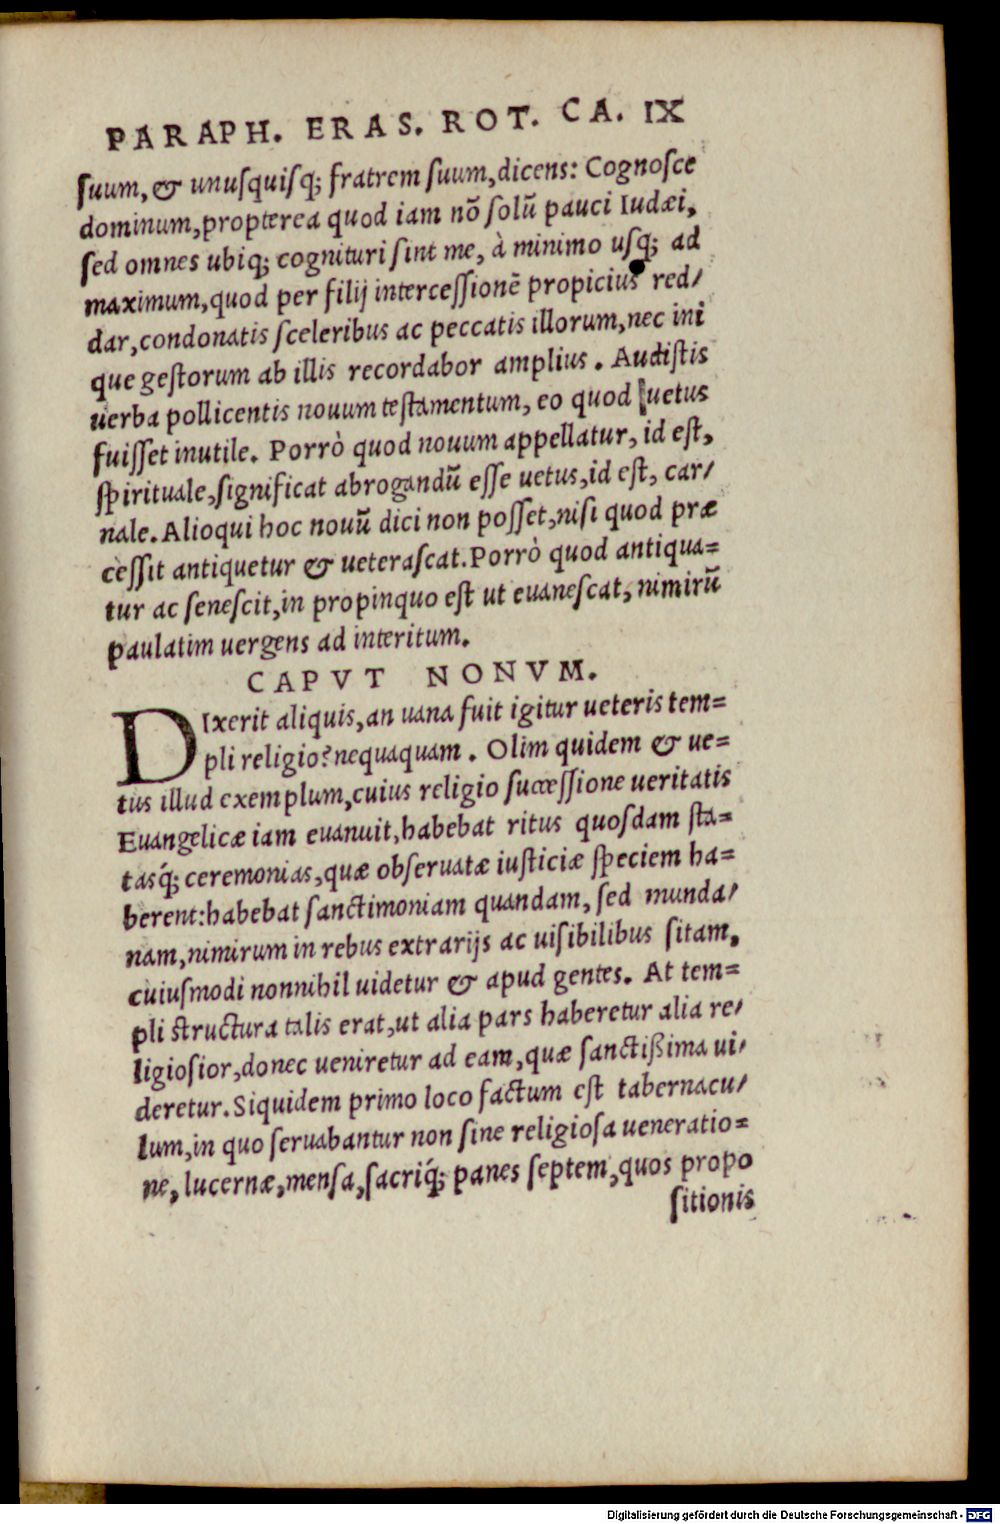 PARAPH. ERAS. ROT. CA. IX
suum, & unusquisq; fratrem suum, dicens: Cognosce
dominum, propterea quod iam nõ solũ pauci Iudæi,
sed omnes ubiq; cognituri sint me, à minimo usq; ad
maximum, quod per filij intercessionẽ propicius red/
dar, condonatis sceleribus ac peccatis illorum, nec ini
que gestorum ab illis recordabor amplius. Audistis
uerba pollicentis nouum testamentum, eo quod uetus
fuisset inutile. Porrò quod nouum appellatur, id est,
spirituale, significat abrogandũ esse uetus, id est, car/
nale. Alioqui hoc nouũ dici non posset, nisi quod præ
cessit antiquetur & ueterascat. Porrò quod antiqua=
tur ac senescit, in propinquo est ut euanescat, nimirũ
paulatim uergens ad interitum.
CAPVT NONVM.
DIxerit aliquis, an uana fuit igitur ueteris tem=
pli religio? nequaquam. Olim quidem & ue=
tus illud exemplum, cuius religio successione ueritatis
Euangelicæ iam euanuit, habebat ritus quosdam sta=
tasq́; ceremonias, quæ obseruatæ iusticiæ speciem ha=
berent: habebat sanctimoniam quandam, sed munda/
nam, nimirum in rebus extrarijs ac uisibilibus sitam,
cuiusmodi nonnihil uidetur & apud gentes. At tem=
pli structura talis erat, ut alia pars haberetur alia re/
ligiosior, donec ueniretur ad eam, quæ sanctißima ui/
deretur. Siquidem primo loco factum est tabernacu/
lum, in quo seruabantur non sine religiosa ueneratio=
ne, lucernæ, mensa, sacriq́; panes septem, quos propo
sitionis
Digitalisierung gefördert durch die Deutsche Forschungsgemeinschaft - DFG